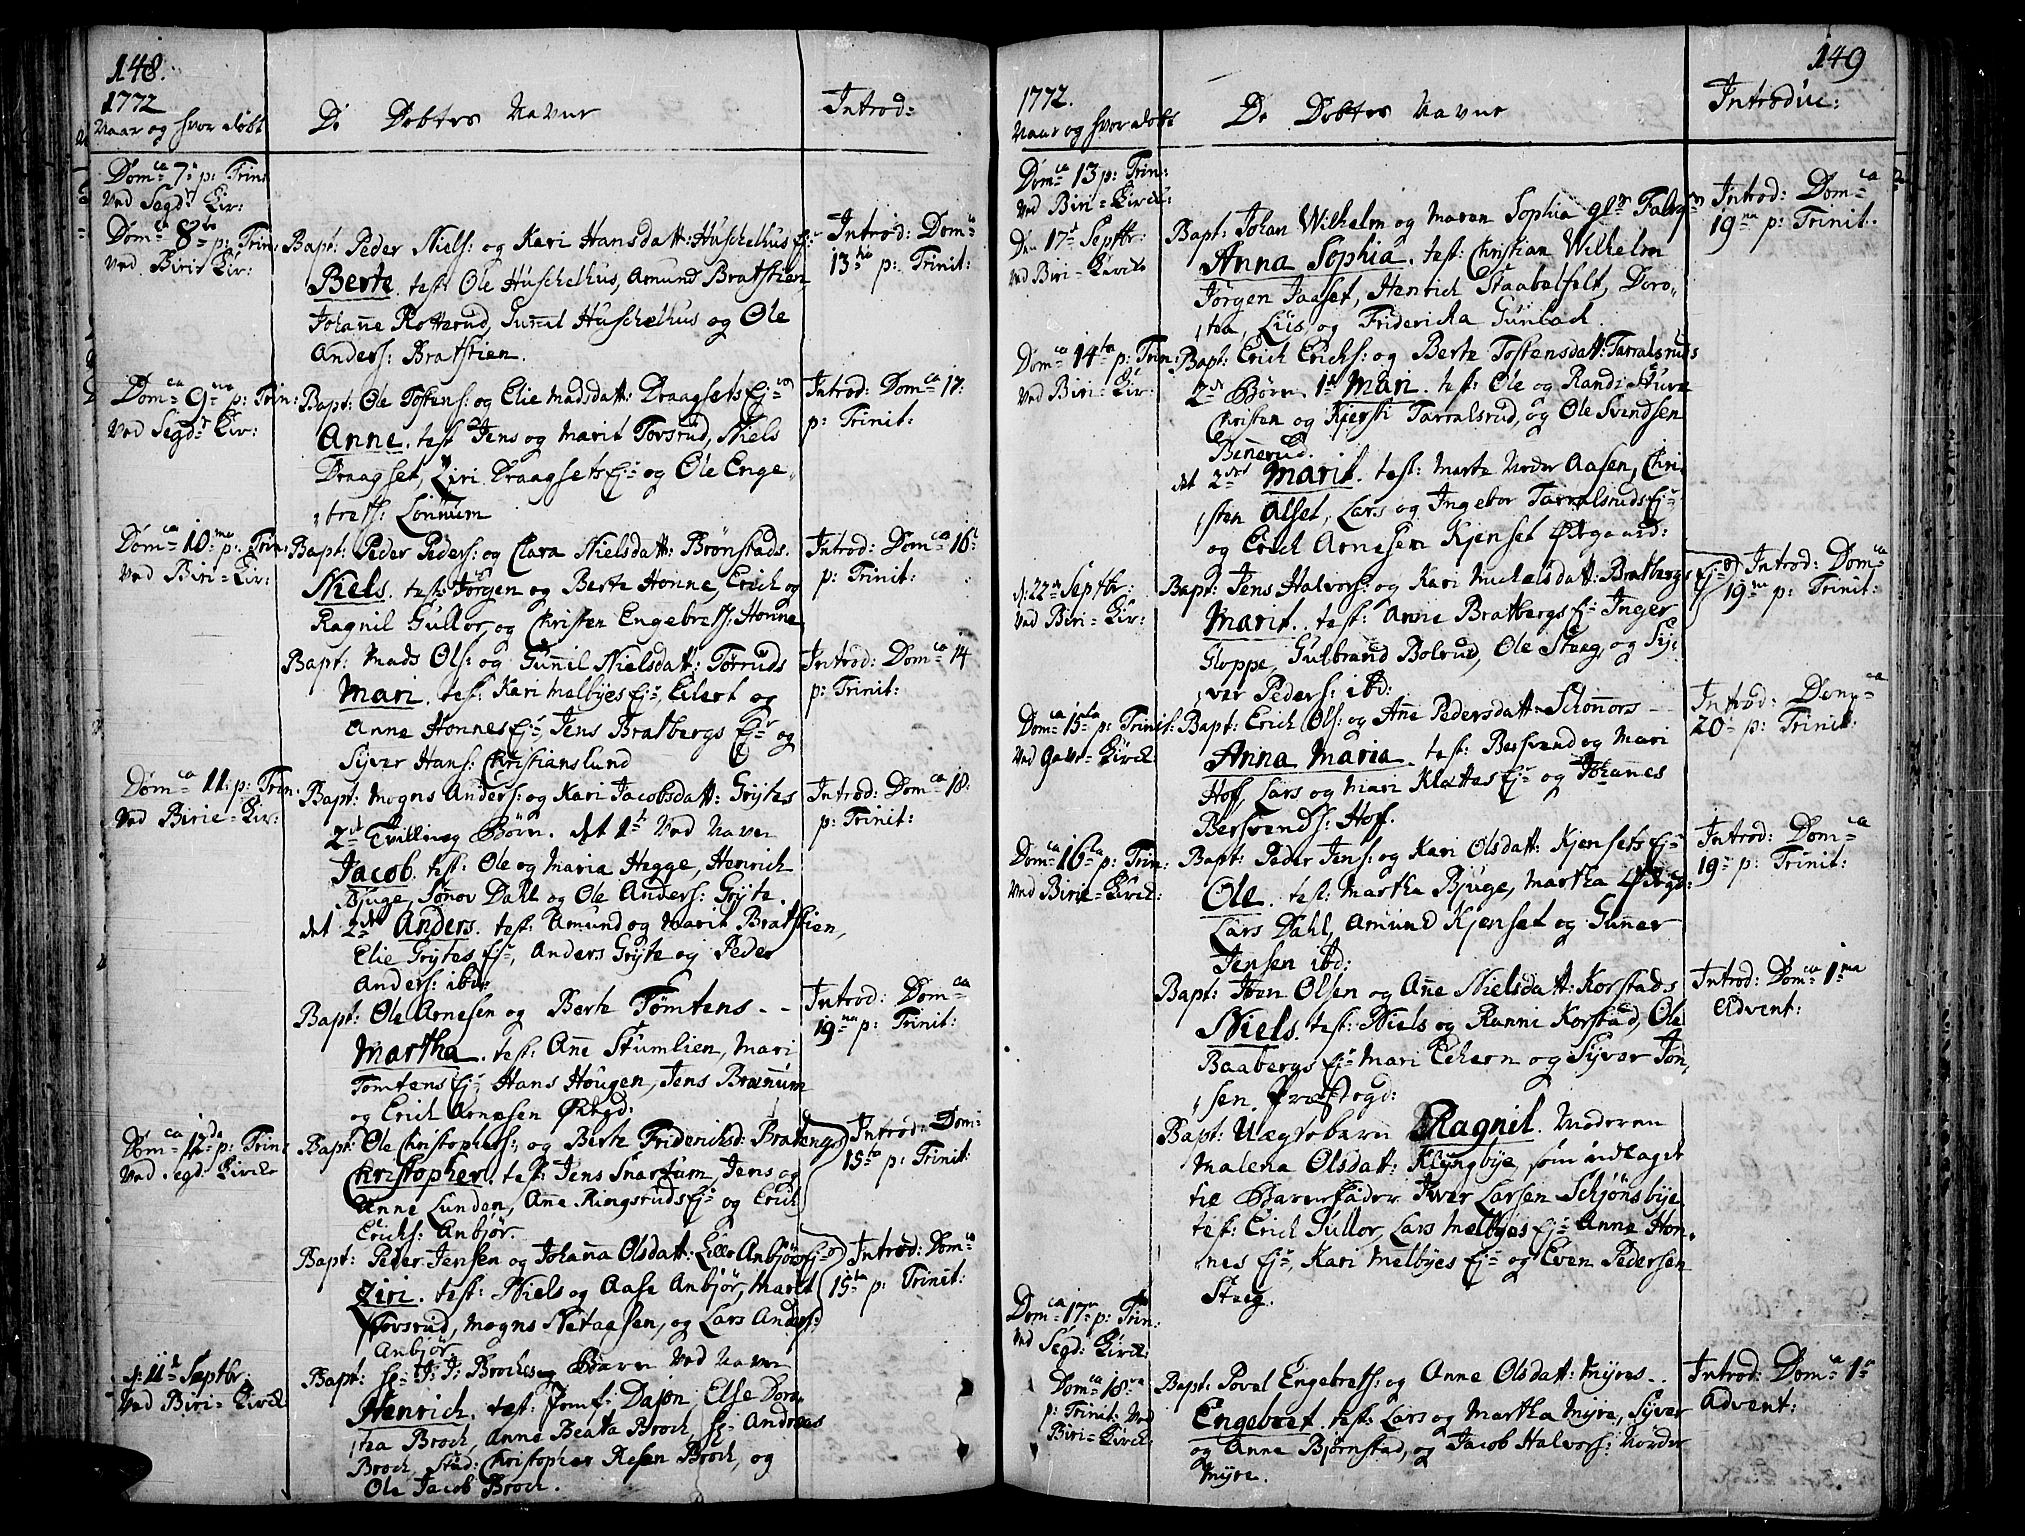 148.
1772
Naar og hvor døbt
De Døbtes Navne
Introd:
Dom:ca 7:a p: Trin:
Ved Segd: Kir:
Dom:ca 8:va p: Trin:
Ved Biri Kir:
Bapt: Peder Niels: og Kari Hansdatt: Huschelhus Ej:r
Berte. test: Ole Huschelhus, Amund Bratstien,
Johanne Rotterud, Gunnil Huschelhus og Ole
Anders: Bratstien.
Introd: Dom:ca
13:tia p: Trinit:
Dom:ca 9:na p: Trin:
Ved Segd: Kir:
Bapt: Ole Tostens: og Elie Madsdatt: Draagsets Ej:r
Anne. test: Jens og Marit Torsrud, Niels
Draagset, Ziri Draagsets Ej:r og Ole Enge-
bretss: Lønnum
Introd: Dom:ca 17:
p: Trinit:
Dom:ca 10:ma p: Trin:
Ved Biri-Kir:
Bapt: Peder Peders: og Clara Nielsdatt: Brønstads.
Niels. test: Jørgen og Berte Honne, Erich og
Ragnil Gullor, og Christen Engebretss: Honne
Introd: Dom:ca 16:
p: Trinit:
Bapt: Mads Ols: og Gunnil Nielsdatt: Tørruds
Mari. test: Kari Melbyes Ej:r, Eilert og
Anne Honnes Ej:r Jens Bratbergs Ej:r og
Syver Hans: Christianslund
Introd: Dom:ca 14
p: Trinit:
Dom:ca 11: p: Trin:
Ved Birie-Kir:
Bapt: Mogns Anders: og Kari Jacobsdatt: Grytes
2:de Tvilling Børn. det 1:te Ved Navn
Jacob. test: Ole og Maria Hegge, Henrich
Bjuge, Sønov Dahl og Ole Anders: Gryte.
det 2:det Anders. test: Amund og Marit Bratstien,
Elie Grytes Ej:r, Anders Gryte og Peder
Anders: ibd:
Introd: Dom:ca 18:
p: Trinit:
Bapt: Ole Arnesen og Berte Tømtens - -
Martha. test: Anne Stumlien, Mari
Tømtens Ej:r Hans Hougen, Jens Brænnum
og Erich Arnesen Østgd:
Introd: Dom:ca
19:na p: Trinit:
Dom:ca 12:da p: Trin:
Ved Segd: Kircke
Bapt: Ole Christophers: og Berte Fridericksd: Bratengs
Christopher. test: Jens Snartum, Jens og
Anne Lunden, Anne Ringsruds Ej:r og Erich
Erichs: Anbjør.
Introd: Dom:
15:ta p: Trinit:
Bapt: Peder Jensen og Johanna Olsdatt: Lille Anbjørs Ej:r
Ziri. test: Niels og Aase Anbjør, Marit
Torsrud, Mogns Netagsen, og Lars Anders:
Anbjør.
Introd: Dom:ca
15:ta p: Trinit:
d: 11:te Septbr:
Ved Biri-Kirck:
Bapt: Hr: J: J: Broches Barn Ved Navn
Henrich. test: Jomf: Dass, Else Doro-
thea Broch, Anne Beata Broch, Hr: Andreas
Broch, Stud: Christopher Resen Broch, og
Ole Jacob Broch.
149
1772.
Naar og hvor døbt
De Døbtes Navne
Introduc:
Dom:ca 13 p: Trin:
Ved Biri-Kirck:
Den 17:d Septbr:
Ved Biri-Kircke
Bapt: Johan Wilhelm og Maren Sophia
Anna Sophia. test: Christian Wilhelm
Jørgen Jaaset, Henrich Staabelfelt, Doro-
thea Liis, og Fridericka Gunlach
Introd: Dom:ca
19:na p: Trinit:
Dom:ca 14:ta p: Trin:
Ved Biri-Kir:
Bapt: Erich Erichs: og Berte Tostensdatt: Tarralsruds
2:de Børn 1:te Mari. test: Ole og Randi Sture
Christen og Kjersti Tarralsrud, og Ole Svendsen
Bennerud.
det 2:det Marit. test: Marte Nordre Aasen, Chri-
sten Alset, Lars og Ingebor Tarralsruds Ej:r
og Erich Arnesen Kjenset Østgaard:
d: 22:de Septbr:
Ved Biri-Kir:
Bapt: Jens Halvors: og Kari Michelsdatt: Bratbergs Ej:r
Marit. test: Anne Bratbergs Ej:r Inger
Gloppe, Gulbrand Bolrud, Ole Staeg, og Sy-
ver Peders: ibd:
Introd: Dom:ca
19:na p: Trinit:
Dom:ca 15:ta p: Trinit:
Ved Kirck:
Bapt: Erich Ols: og Anne Pedersdatt: Schonnors - -
Anna Maria. test: Bersvend og Mari
Hof, Lars og Mari Klættes Ej:r og Johannes
Bersvends: Hof.
Introd: Dom:ca
20: p: Trinit:
Dom:ca 16:ta p: Trin:
Ved Birie-Kirck:
Bapt: Peder Jens: og Kari Olsdatt: Kjensets Ej:r
Ole. test: Martha Bjuge, Martha Østgd:
Lars Dahl, Amund Kjenset og Gunner
Jensen ibd:
Introd: Dom:ca
19: p: Trinit:
Bapt: Iven Olsen og Anne Nielsdatt: Korstads
Niels. test: Niels og Ranni Korstad, Ole
Baabergs Ej:r Mari Echern og Syver Jon-
sen Præstegd:
Introd: Dom:ca 1:ma
Advent:
Bapt: Uægtebarn Ragnil. Moderen
Malena Olsdatt: Klyngbye, som udlaget
til Barnefader Iver Larsen Schjønsbye
test: Erich Gullor, Lars Melbyes Ej:r Anne Hon-
nes Ej:r, Kari Melbyes Ej:r og Even Pedersen
Staeg.
Dom:ca 17: p: Trin:
Ved Segd: Kirck:
Dom:ca 18:va
p: Trinit: Ved
Biri-Kirck:
Bapt: Povel Engebretss: og Anne Olsdatt: Myres - -
Engebret. test: Lars og Martha Myre, Syver
og Anne Bjørnstad, og Jacob Halvors: Norder
Myre.
Introd: Dom:ca 1:a
Advent: